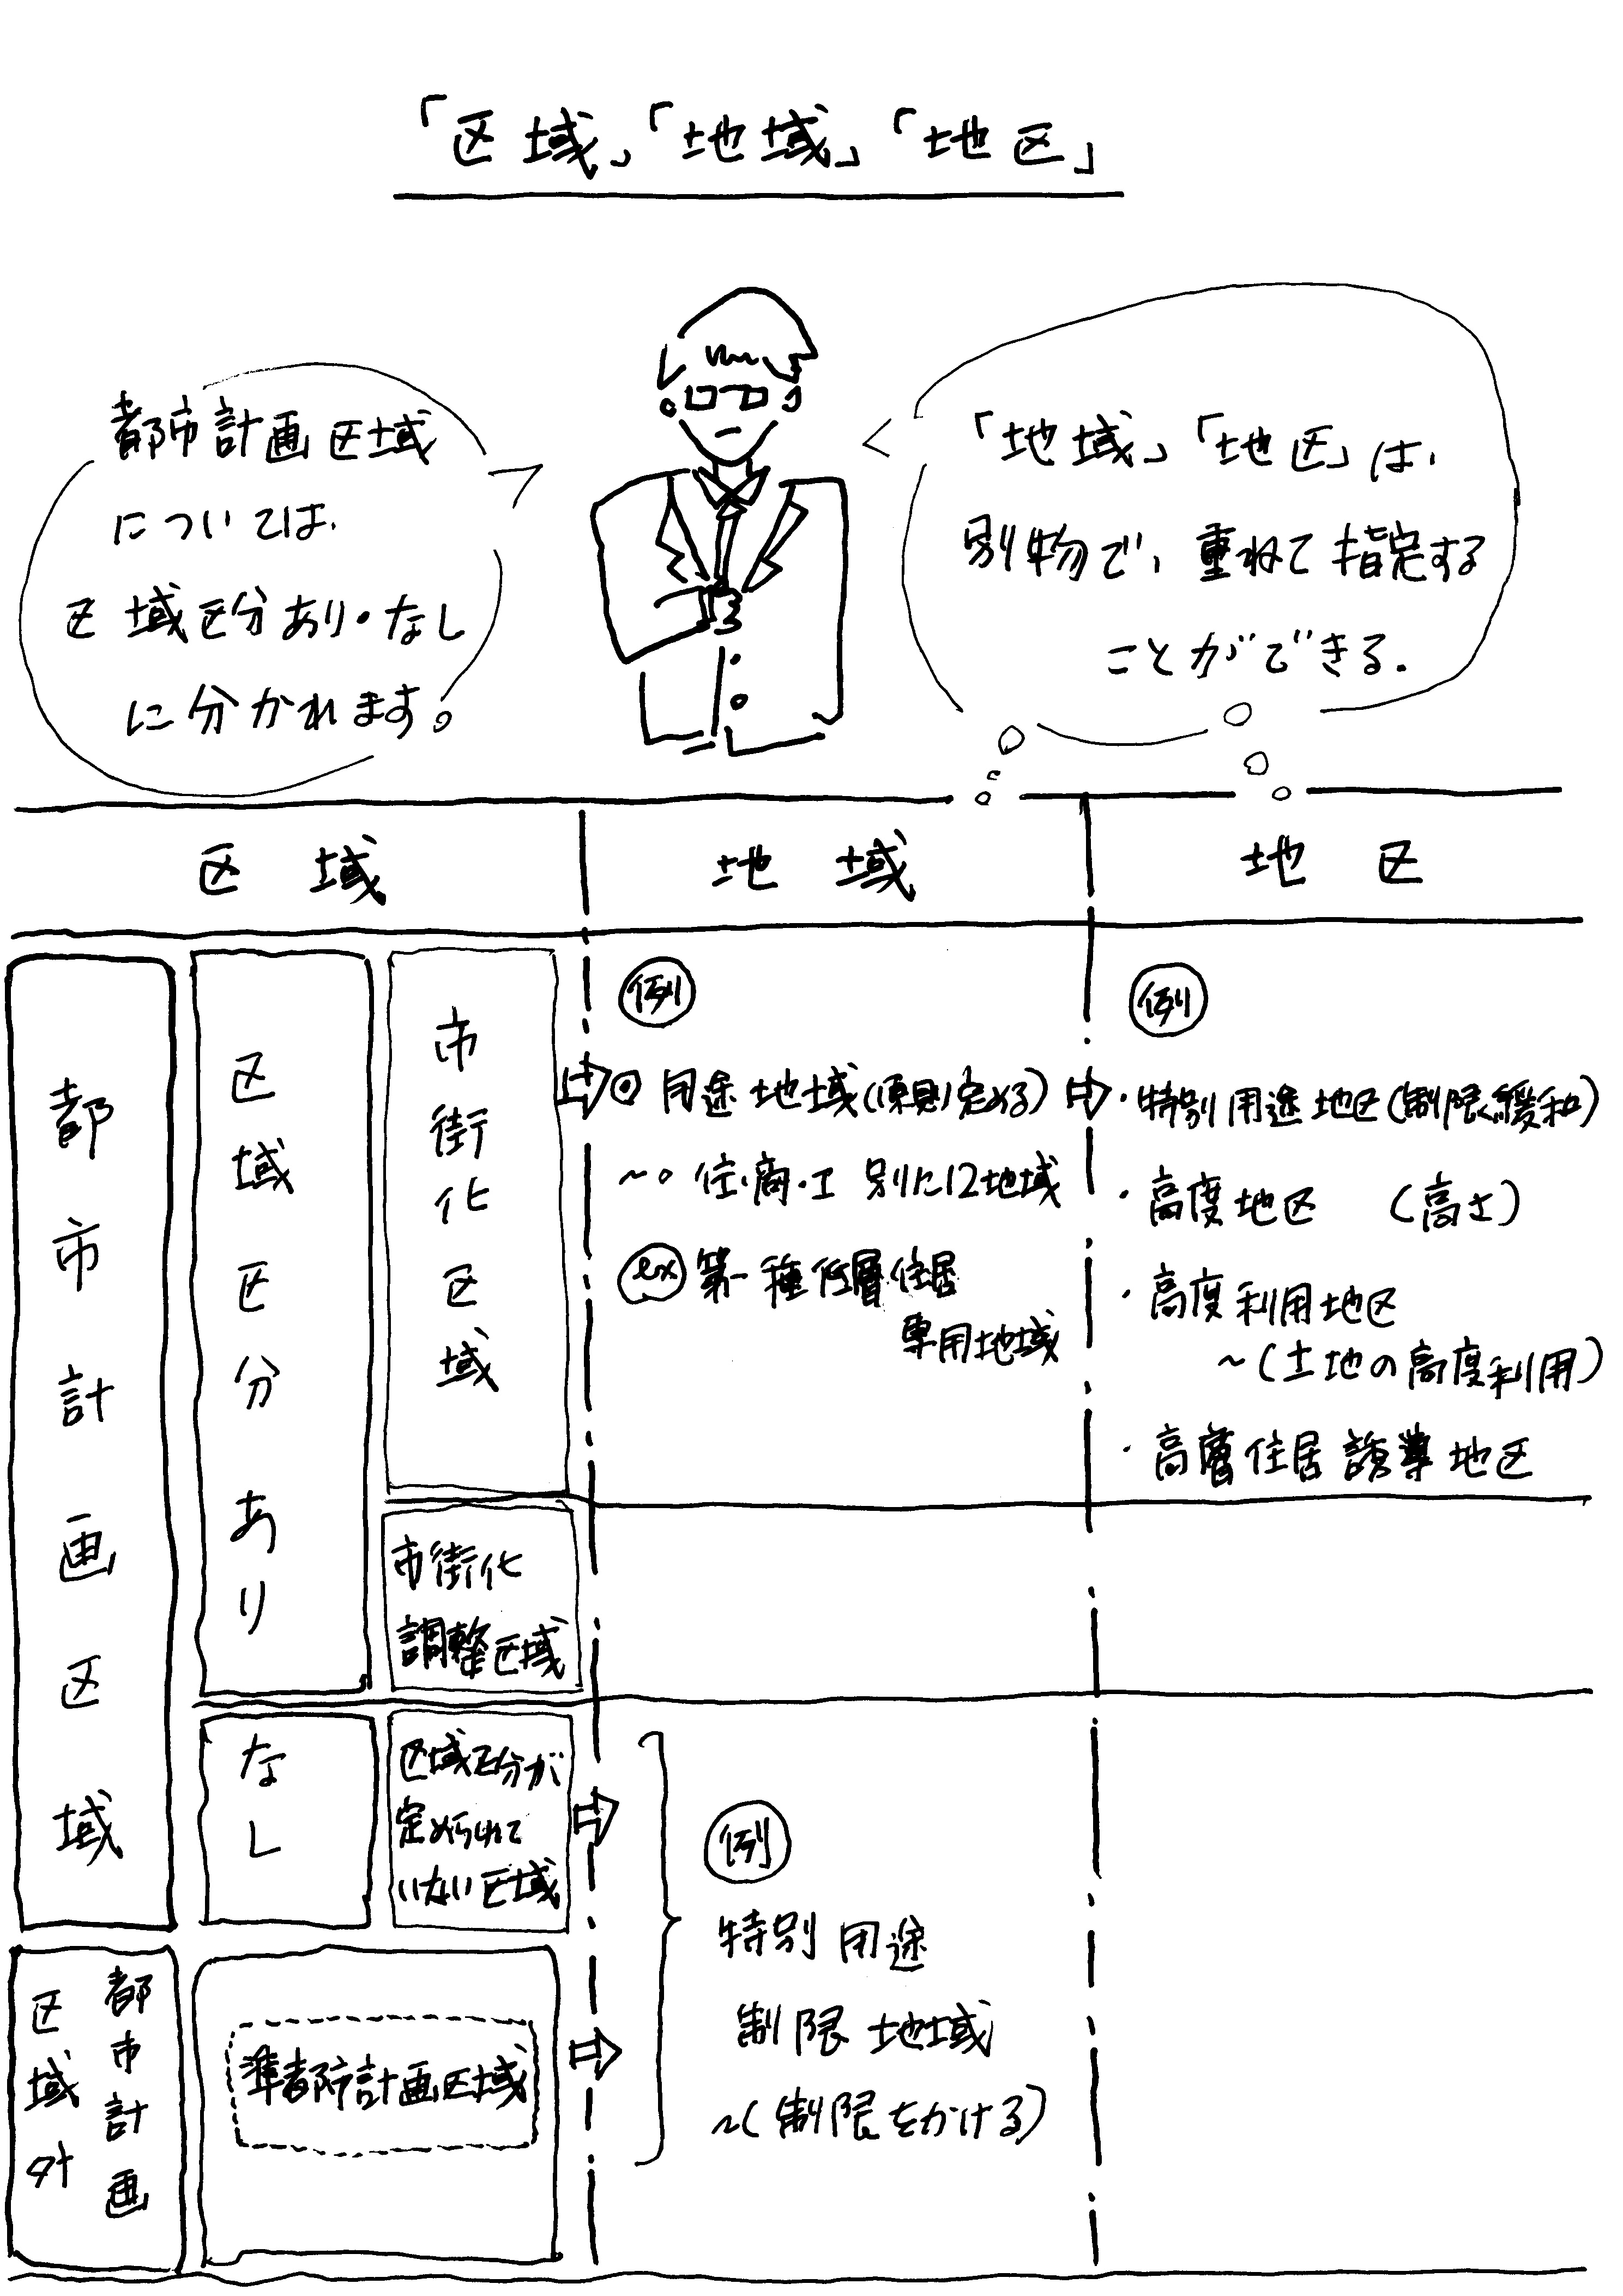 「区域」「地域」「地区」
都市計画区域
については、
区域区分あり・なし
に分かれます。
「地域」「地区」は、
別物で、重ねて指定する
ことができる.
区域
地域
地区
都市計画区域
区域区分あり
市街化区域
例
◉用途地域(原則定める)
〜○住・商・工別に12地域
ex 第一種低層住居
専用地域
例
・特別用途地区(制限、緩和)
・高度地区 (高さ)
・高度利用地区
〜(土地の高度利用)
・高層住居誘導地区
市街化
調整区域
なし
区域区分が
定められて
いない区域
例
特別用途
制限地域
〜(制限をかける)
都市計画
区域外
準都市計画区域